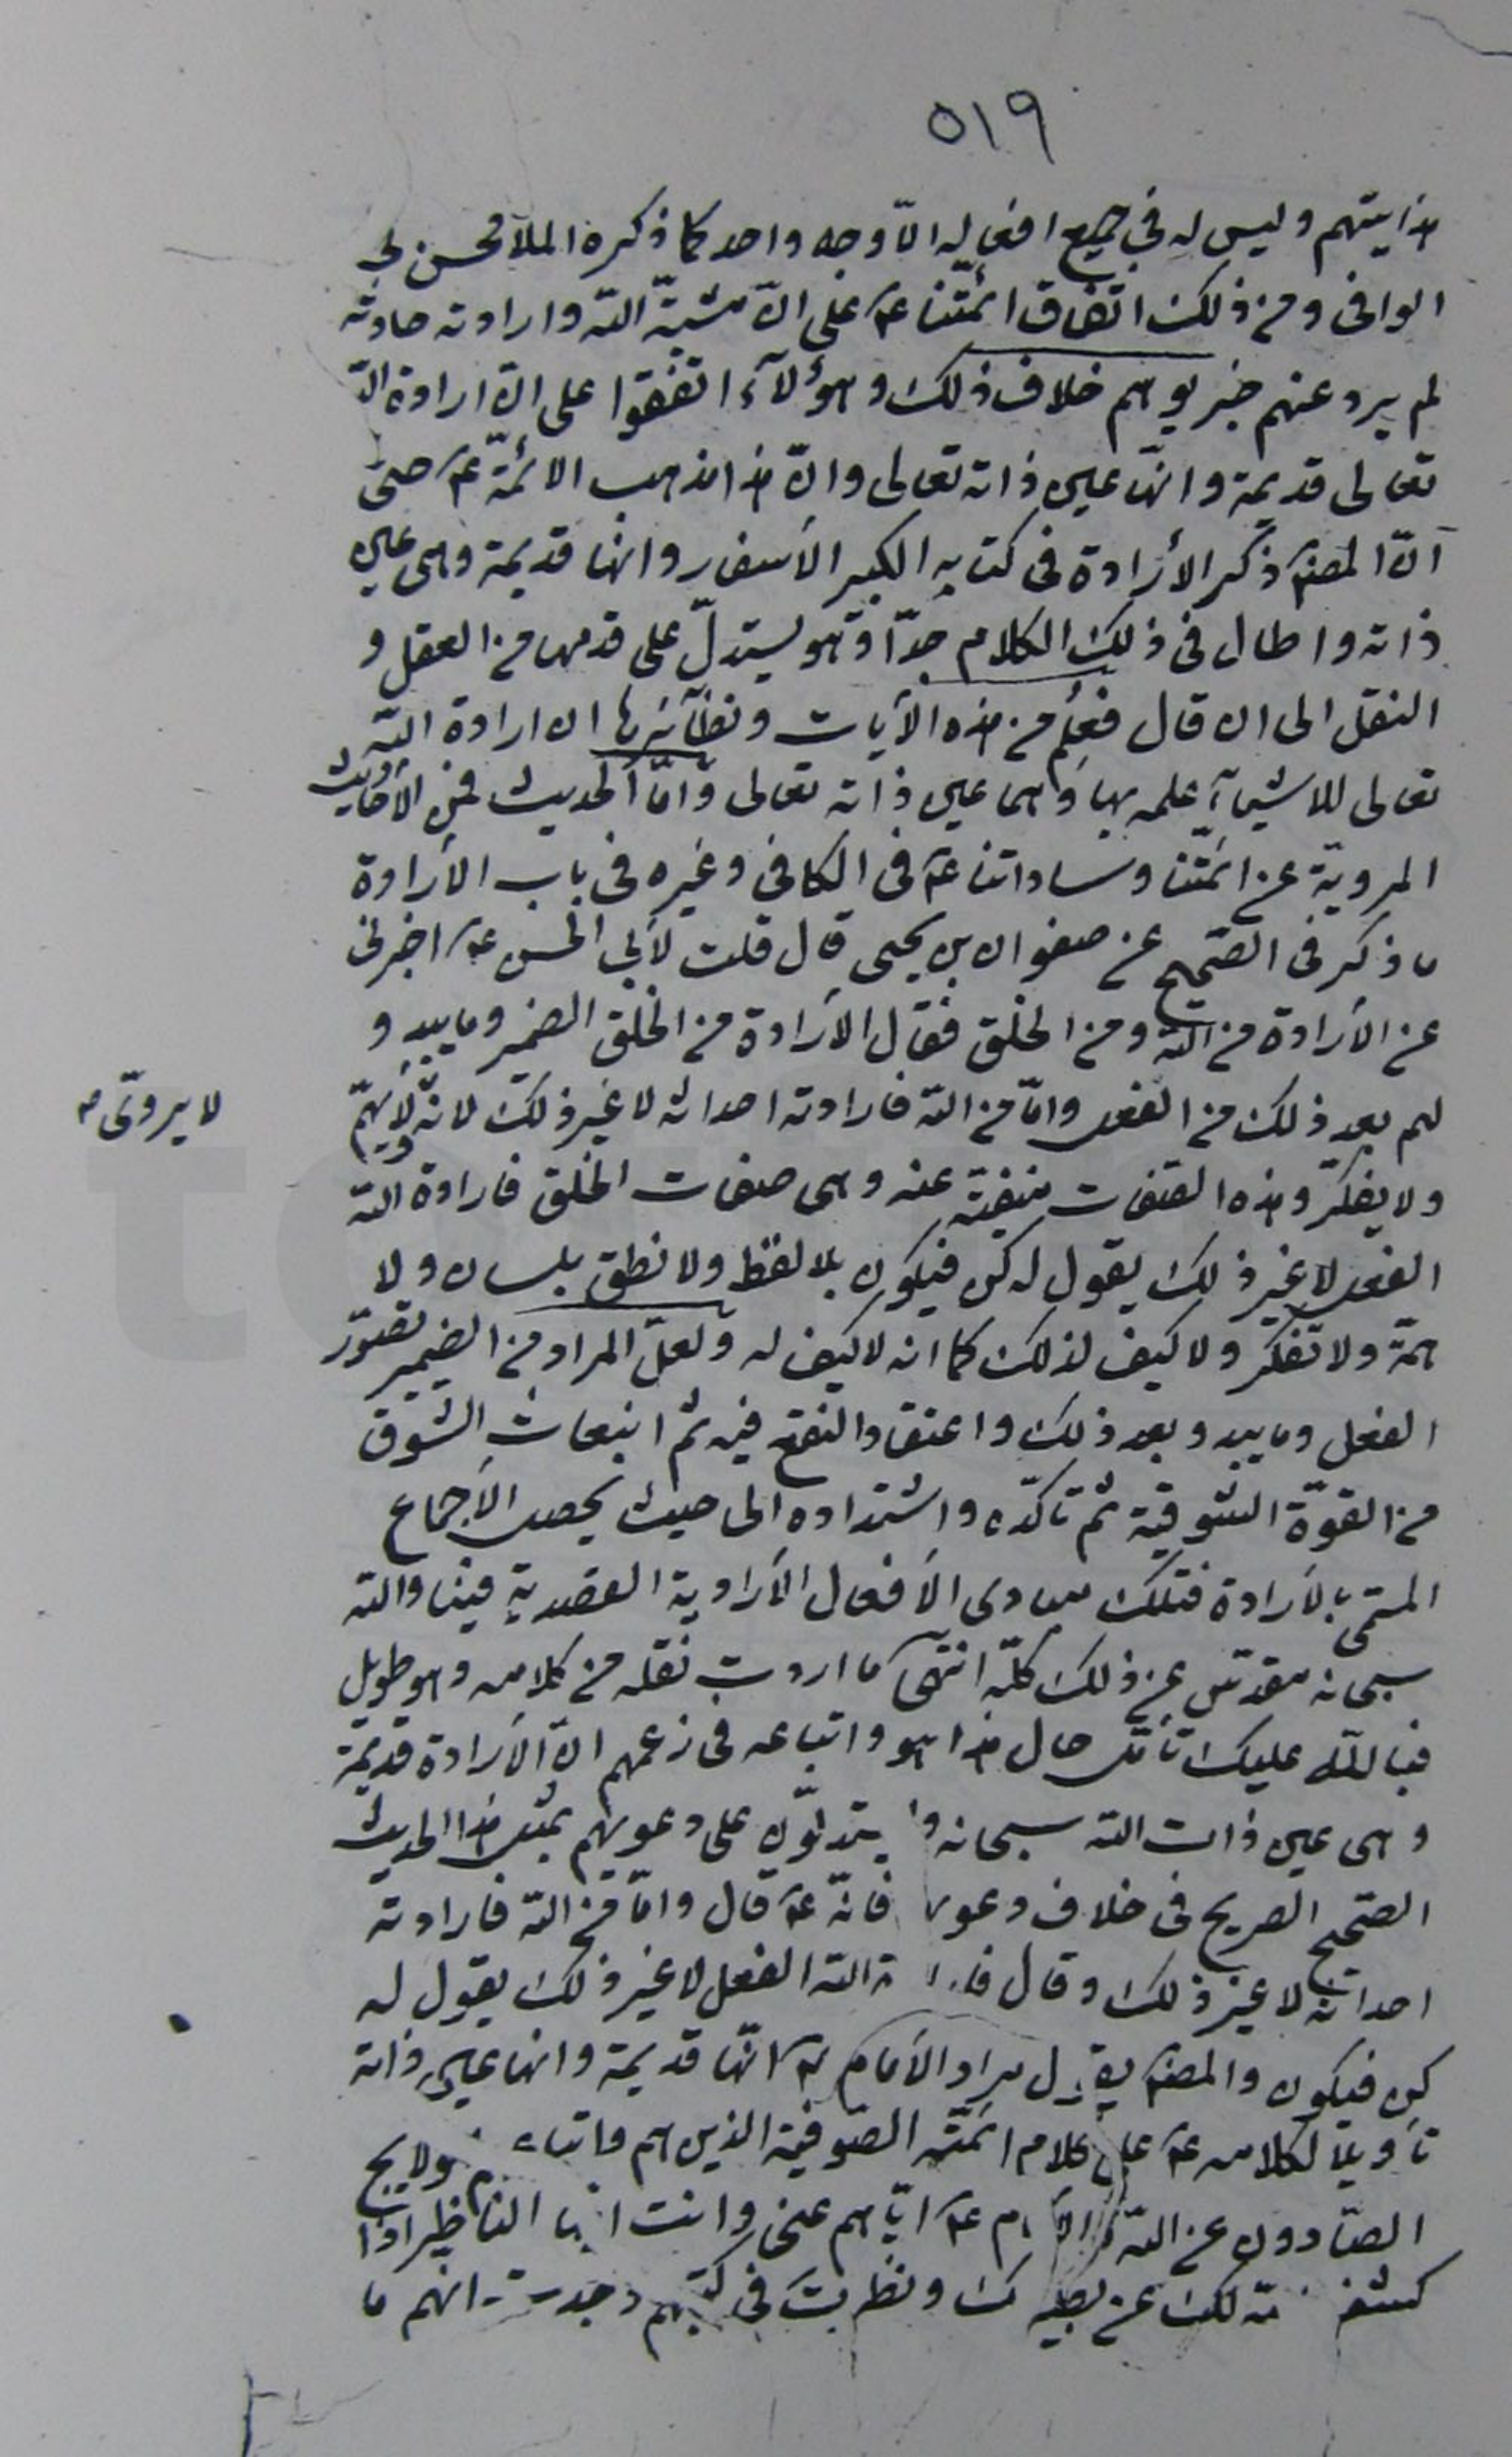 ٥١٩
هذايتهم وليس له في جميع افعاله الّا وجه واحد كما ذكره الملا محسن في
الوافى ومن ذلك اتفاق ائمّتنا عم على انّ مشيّة اللّه وارادته حادثة
لم يرد عنهم خبر يوهم خلاف ذلك وهؤلآء اتفقوا على انّ ارادة اللّه
تعالى قديمة وانّها عين ذاته تعالى وانّ هذا مذهب الائمّة عم حتى
انّ المصنف ذكر الأرادة فى كتابه الكبير الأسفار وانها قديمة وهى عين
ذاته واطال فى ذلك الكلام جدّا وهو يستدلّ على قدمها من العقل و
النقل الى ان قال فعلم من هذه الأيات ونظآئرها ان ارادة اللّه
تعالى للاشيآء علمه بها وهى عين ذاته تعالى وامّا الحديث فمن الأحاديث
المرويّة عن ائمّتنا وساداتنا عم فى الكافى وغيره فى باب الأرادة
ما ذكر فى الصّحيح عن صفوان بن يحيى قال قلت لأبي الحسن عم اخبرنى
عن الأرادة من اللّه ومن الخلق فقال الأرادة من الخلق الضمير وما يبدو
لهم بعد ذلك من الفعل وامّا من اللّه فارادته احداثه لا غير ذلك لانه ولا يهمّ
لا يروّى م
ولا يفكّر وهذه الصّفات منفيّة عنه وهى صفات الخلق فارادة اللّه
الفعل لا غير ذلك يقول له كن فيكون بلا لفظ ولا نطق بلسان ولا
همّة ولا تفكّر ولا كيف لذلك كما انه لا كيف له ولعلّ المراد من الضمير تصوّر
الفعل وما يبدو بعد ذلك واعتقاد النفع فيه ثم انبعاث الشوق
من القوّة الشوقية ثم تاكّده واشتداده الى حيث يحصل الأجماع
المسمّى بالأرادة فتلك مبادى الأفعال الأرادية القصدية فينا واللّه
سبحانه مقدّس عن ذلك كلّه انتهى ما اردت نقله من كلامه وهو طويل
فباللّه عليك تأمّل حال هذا هو واتباعه فى زعمهم انّ الأرادة قديمة
وهى عين ذات اللّه سبحانه و يستدلّون على دعويهم بمثل هذا الحديث
الصّحيح الصريح فى خلاف دعو فانّه عم قال وامّا من اللّه فارادته
احداثه لا غير ذلك وقال اللّه الفعل لا غير ذلك يقول له
كن فيكون والمصنف يقول مراد الأمام عم انّها قديمة وانها عين ذاته
تأويلا لكلامه عم على كلام ائمّته الصّوفية الذين هم ولا
الصّادون عن اللّه عم ايّاهم عنى وانت ايها الناظر اذا
لك عن ونظرت فى كتبهم وجدت انهم ما